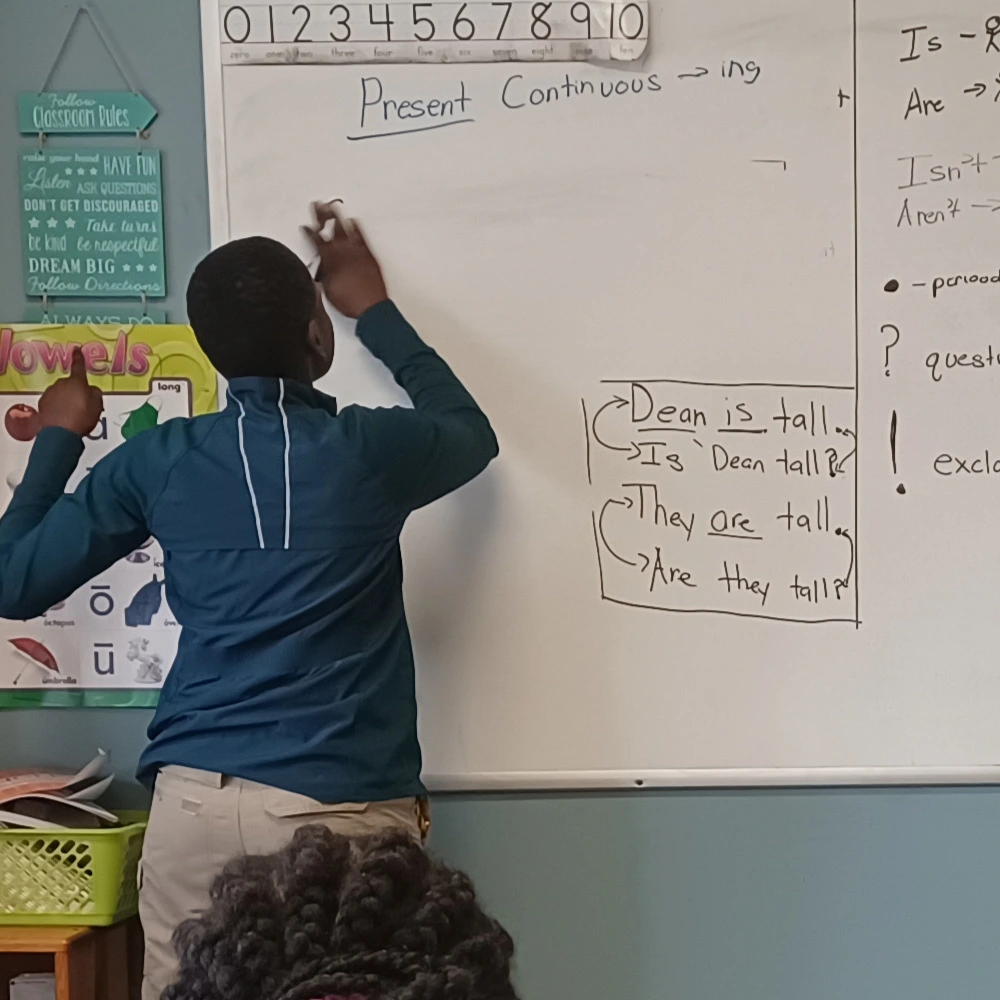 0 1 2 3 4 5 6 7 8 9 10
zero one two three four five six seven eight nine ten
Present Continuous → ing
Follow
Classroom Rules
raise your hand HAVE FUN
Listen ASK QUESTIONS
DON'T GET DISCOURAGED
Take turns
be kind be respectful
DREAM BIG
Follow Directions
ALWAYS DO
Vowels
long
ō
octopus
ū
umbrella
Dean is tall.
Is Dean tall?
They are tall.
Are they tall?
Is -
Are →
Isn't
Aren't →
• - perood
?
!